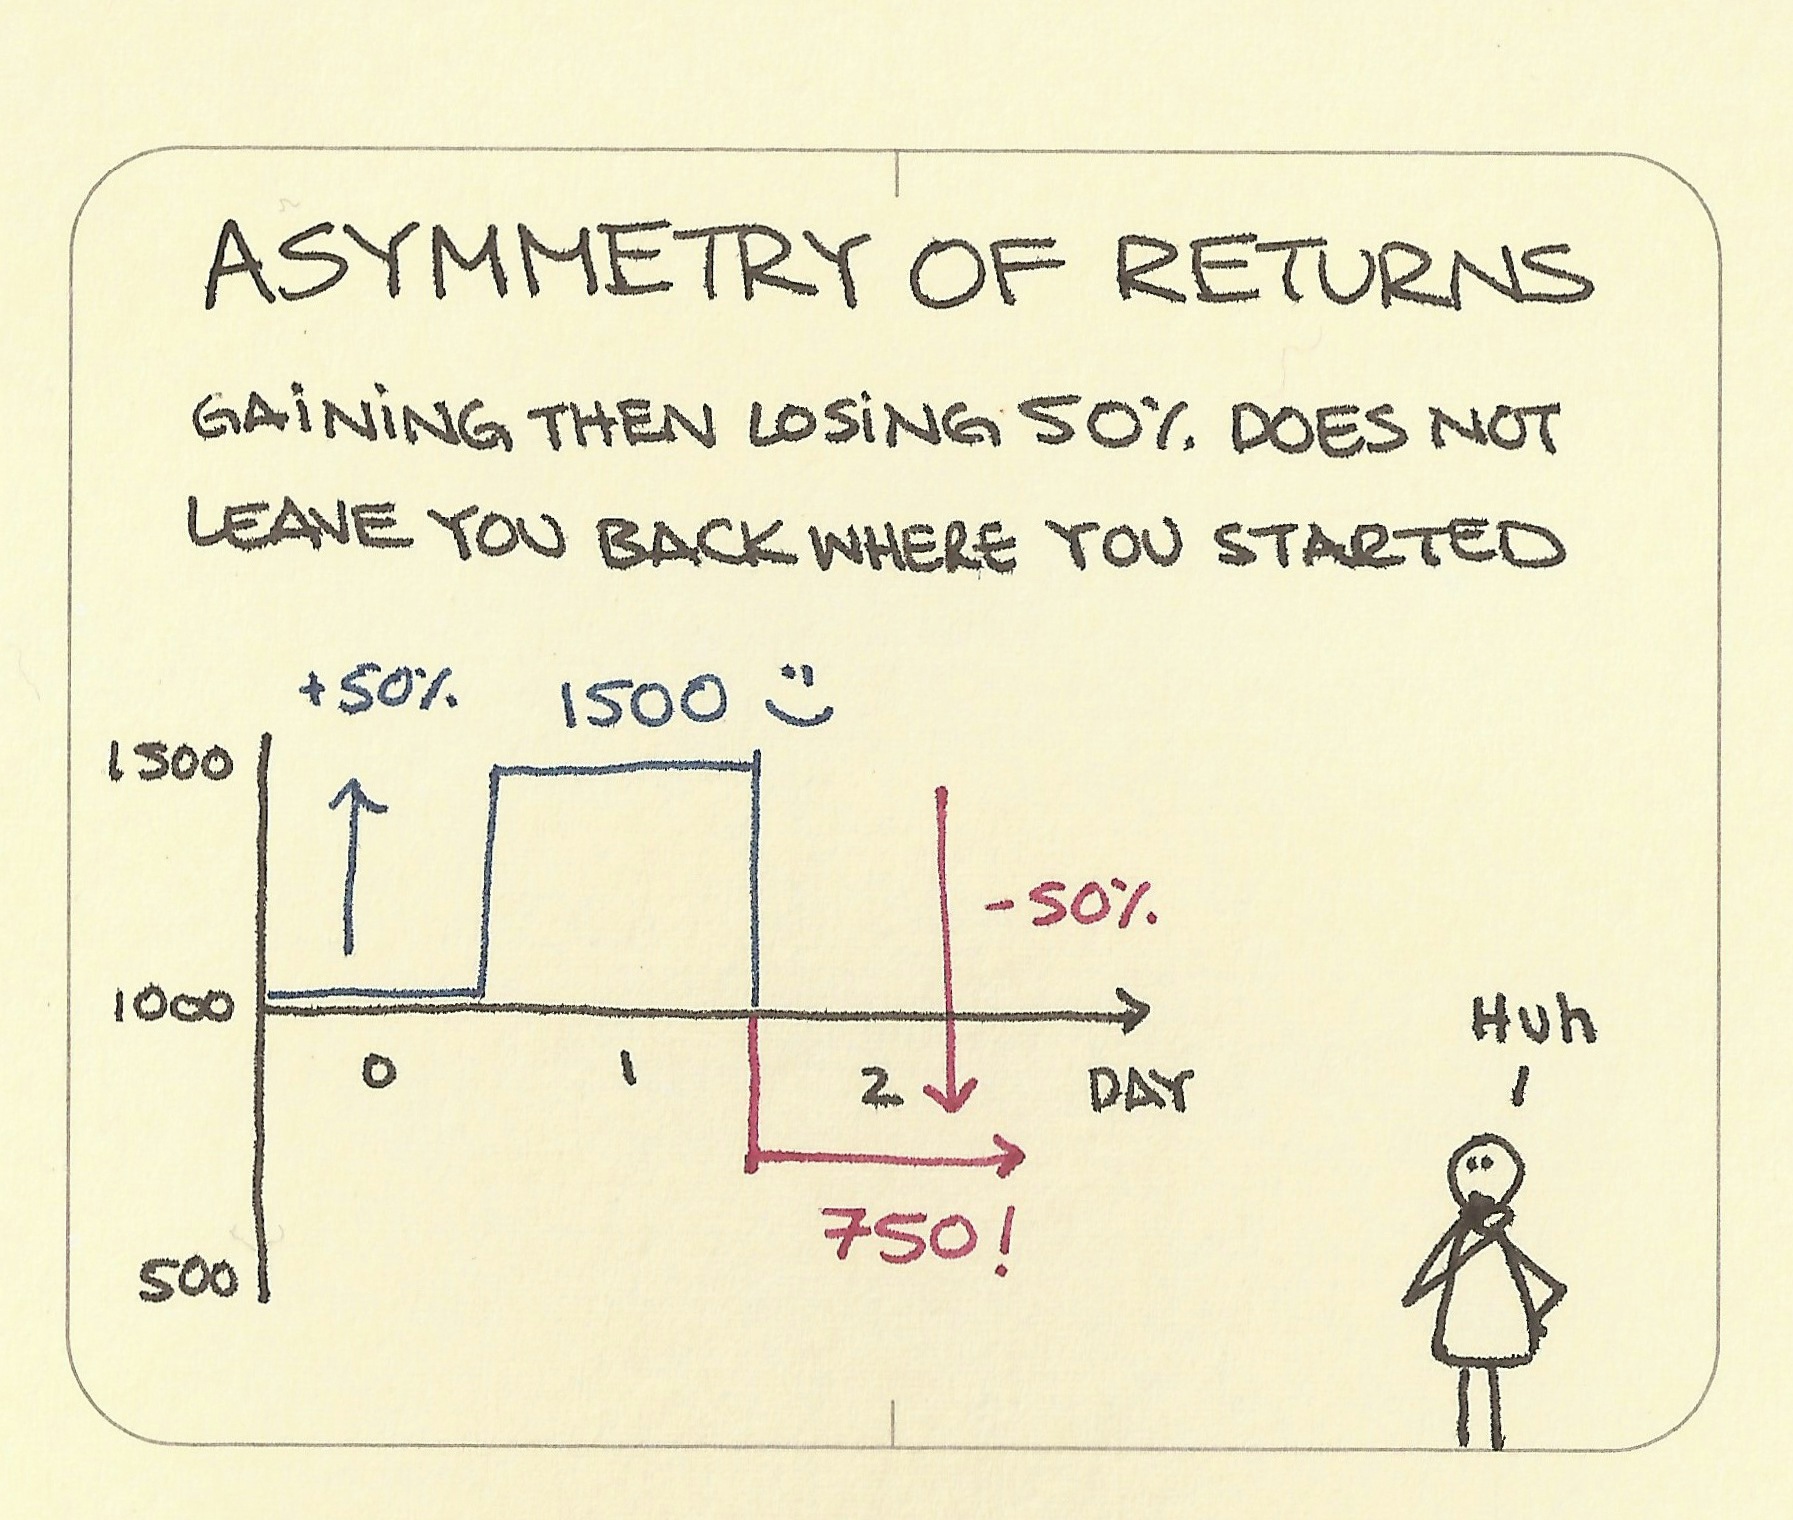 ASYMMETRY OF RETURNS
GAiNiNG THEN LOSiNG 50% DOES NOT
LEAVE YOU BACK WHERE YOU STARTED
+50% 1500 :)
1500
-50%
1000
Huh
0 1 2 DAY
750!
500